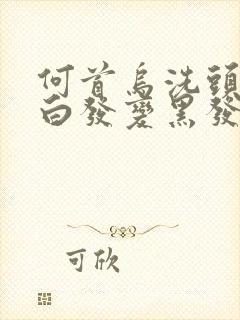 何首烏洗頭
白發變黑發
可欣